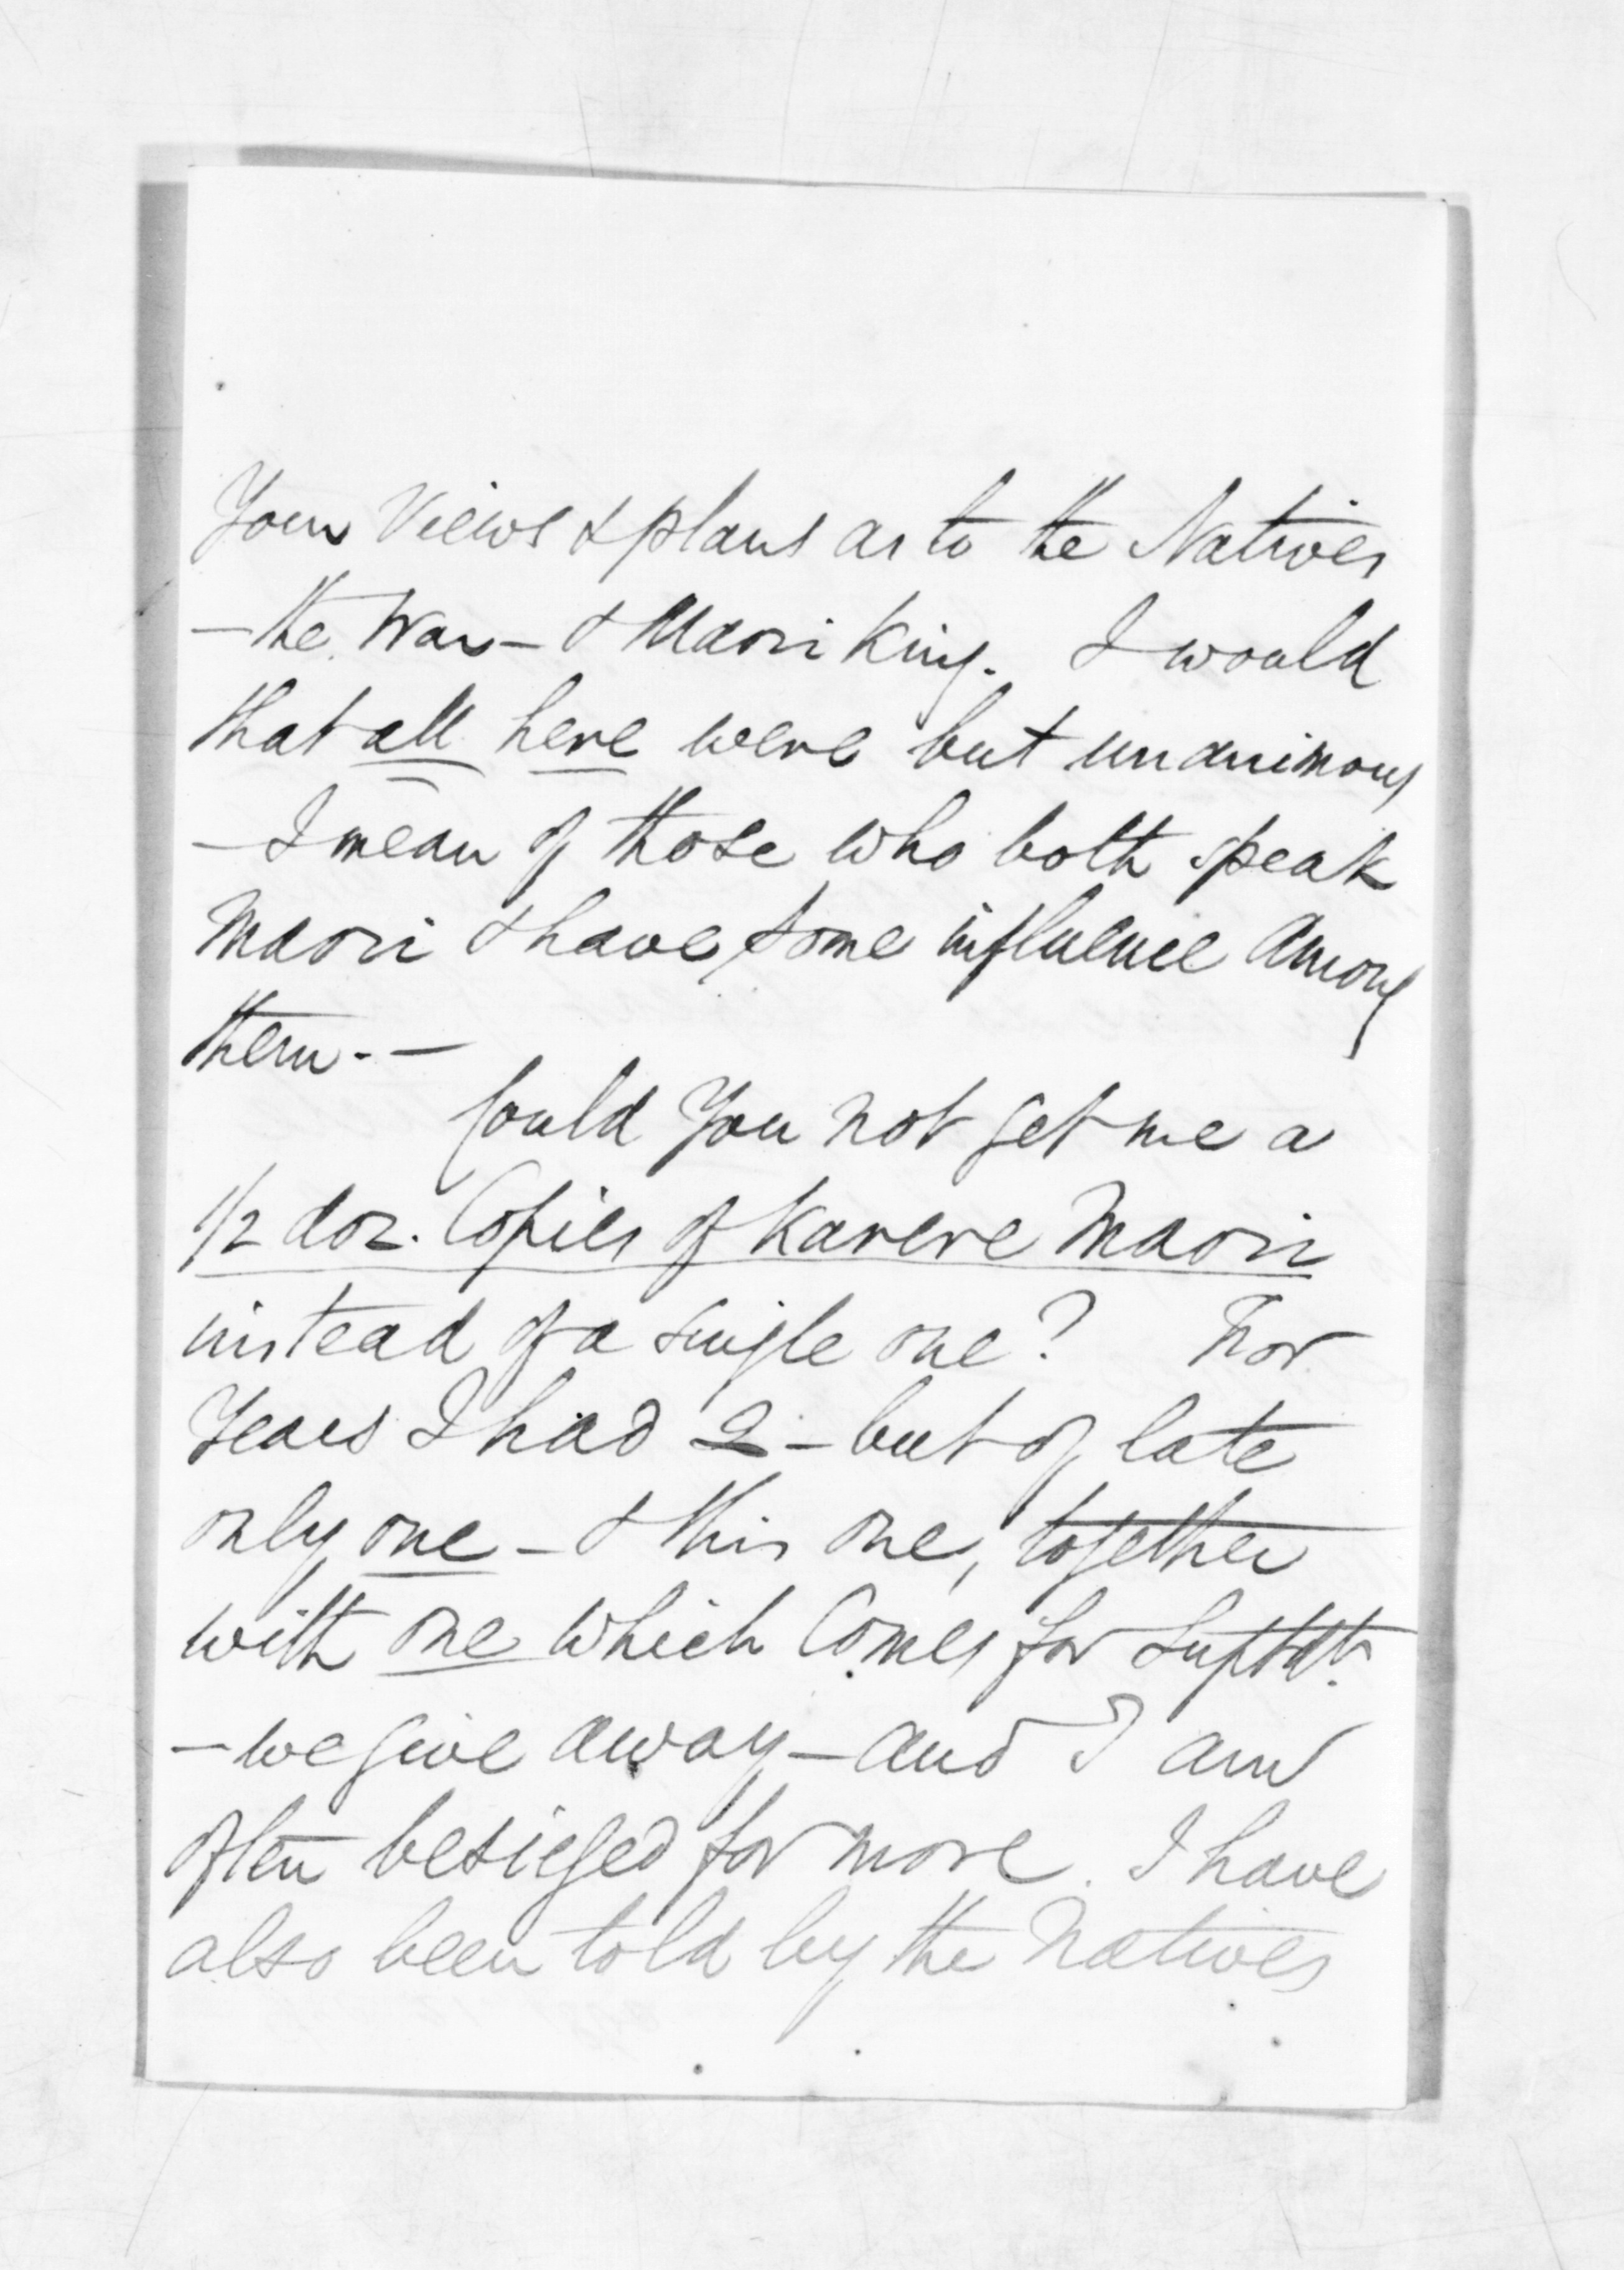 Your Views & plans as to the Natives
— the War — & Maori King. I would
that all here were but unanimous
— I mean of those who both speak
Maori & have some influence among
them. —
Could You not get me a
1/2 doz. Copies of Karere Maori
instead of a single one? For
Years I had 2 — but of late
only one — & this one, together
with one which Comes for Suptdt.
— we give away — and I am
often besieged for more. I have
also been told by the Natives